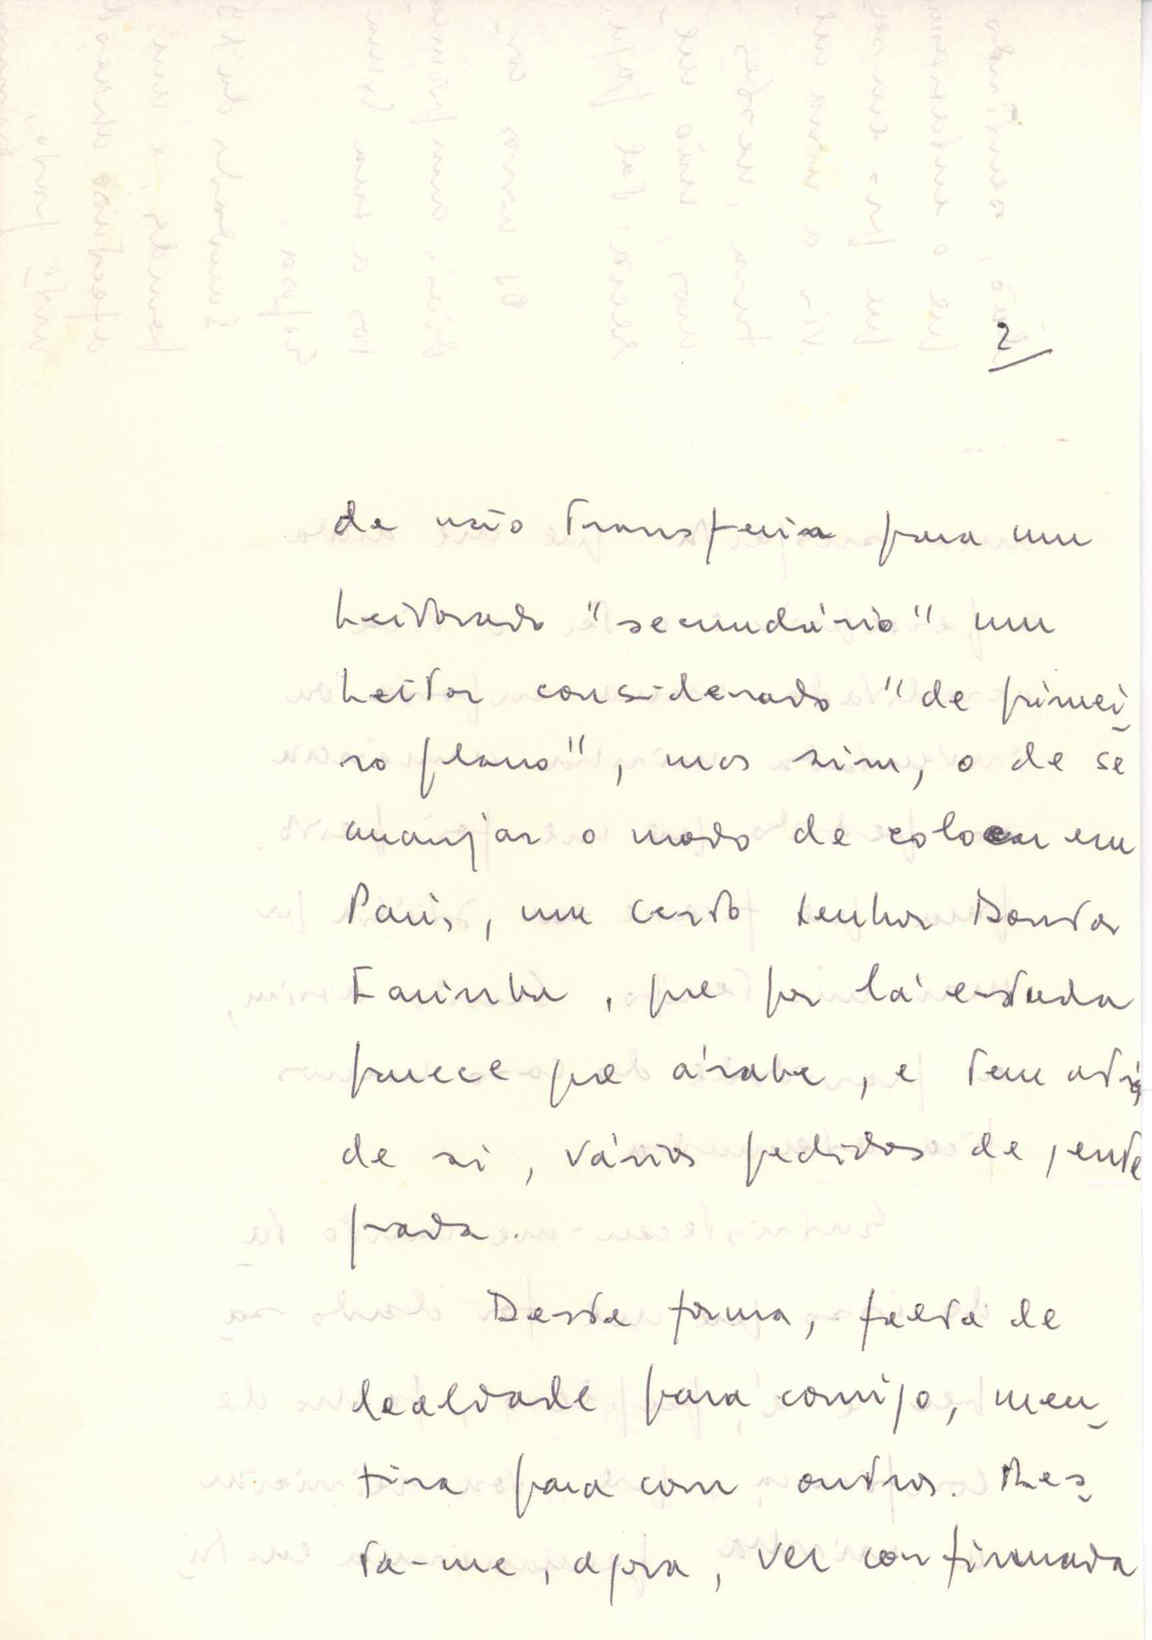 2
de não transferir para um
Leitorado "secundário" um
Leitor considerado "de primei-
ro plano", mas sim, o de se
arranjar o modo de colocar em
Paris, um certo Senhor Doutor
Farinha, que por lá estuda
parece que árabe, e tem atrás
de si, vários pedidos de gente
grada.
Desta forma, falta de
lealdade para comigo, men-
tira para com outros. Res-
ta-me, agora, ver confirmada